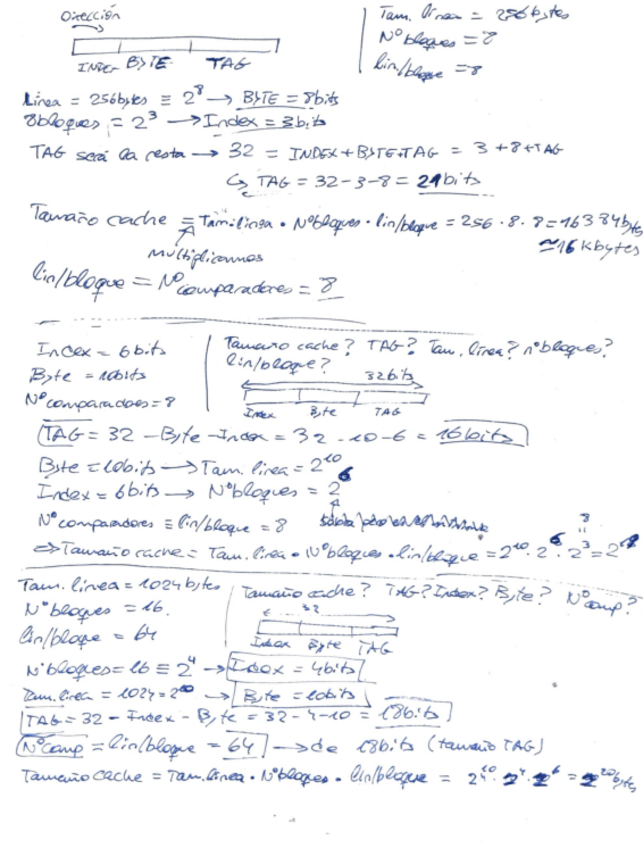 Dirección
INDEX BYTE TAG
Tam. línea = 256 bytes
Nº bloques = 8
lin/bloque = 8
Línea = 256 bytes ≡ 2^8 → BYTE = 8 bits
8 bloques = 2^3 → Index = 3 bits
TAG será la resta → 32 = INDEX + BYTE + TAG = 3 + 8 + TAG
↳ TAG = 32 - 3 - 8 = 21 bits
Tamaño cache = Tam. línea · Nº bloques · lin/bloque = 256 · 8 · 8 = 16384 bytes
≃ 16 Kbytes
Multiplicamos
lin/bloque = Nº comparadores = 8
Index = 6 bits
Byte = 10 bits
Nº comparadores = 8
Tamaño cache? TAG? Tam. línea? nº bloques?
lin/bloque?
32 bits
Index Byte TAG
TAG = 32 - Byte - Index = 32 - 10 - 6 = 16 bits
Byte = 10 bits → Tam. línea = 2^10
Index = 6 bits → Nº bloques = 2^6
Nº comparadores ≡ lin/bloque = 8
8
⇒ Tamaño cache = Tam. línea · Nº bloques · lin/bloque = 2^10 · 2^6 · 2^3 =
Tam. línea = 1024 bytes
Nº bloques = 16.
lin/bloque = 64
Tamaño cache? TAG? Index? Byte? Nº Comp?
32
Index Byte TAG
Nº bloques = 16 ≡ 2^4 → Index = 4 bits
Tam. línea = 1024 = 2^10 → Byte = 10 bits
TAG = 32 - Index - Byte = 32 - 4 - 10 = 18 bits
Nº comp = lin/bloque = 64 → de 18 bits (tamaño TAG)
Tamaño cache = Tam. línea · Nº bloques · lin/bloque = 2^10 · 2^4 · 2^6 = 2^20 bytes